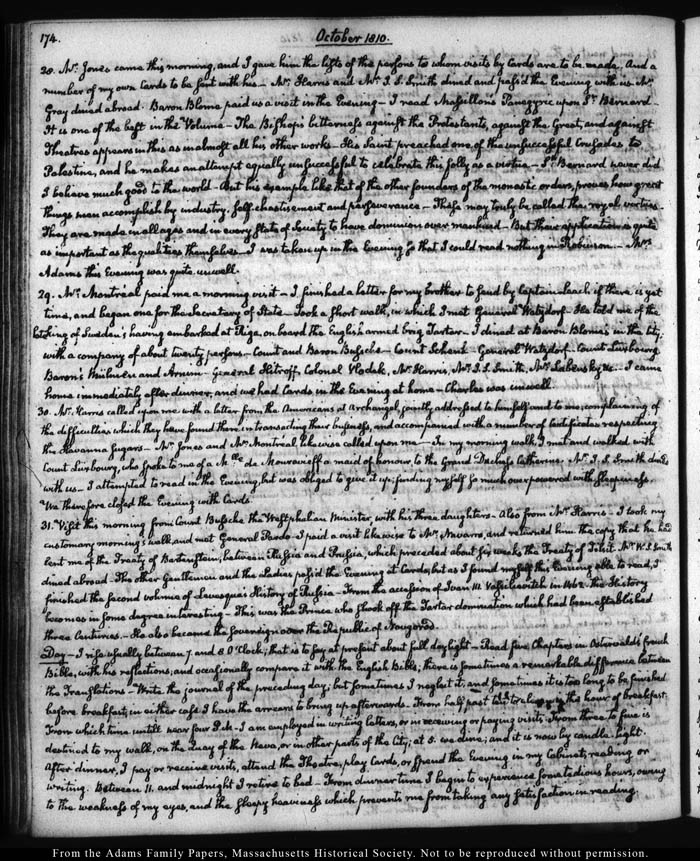 174.
October 1810.
28. Mr. Jones came this morning, and I gave him the lists of the persons to whom visits by Cards are to be made, and a
number of my own Cards to be sent with his— Mr. Harris and Mr. J. S. Smith dined and pass'd the Evening with us. Mr.
Gray dined abroad. Baron Blome paid us a visit in the Evening— I read Massillon's Panegyric upon St. Bernard—
It is one of the best in the Volume— The Bishop's bitterness against the Protestants, against the Great, and against
Theatres appears in this as in almost all his other works— His Saint preached one of the unsuccessful Crusades, to
Palestine, and he makes an attempt equally unsuccessful to celebrate this folly as a virtue— St. Bernard never did
I believe much good to the world— But his example like that of the other founders of the monastic orders, proves how great
things men accomplish by industry, self chastisement and perseverance— These may truly be called the royal virtues.
They are made in all ages and in every State of Society to have dominion over mankind— But their application is quite
as important as the qualities themselves— I was taken up in the Evening so that I could read nothing in Robinson.— Mrs.
Adams this Evening was quite unwell.
29. Mr. Montreal paid me a morning visit— I finished a letter for my brother to send by Captain Leach if there is yet
time, and began one for the Secretary of State— Took a short walk, in which I met General Watzdorf. He told me of the
late King of Sweden's having embarked at Riga, on board the English armed brig Tartar— I dined at Baron Blome's in the city,
with a company of about twenty persons— Count and Baron Bussche— Count Schenk— General Watzdorf— Count Luxbourg
Baron's and Arnim— General Hitroff, Colonel Vlodek, Mr. Harris, Mr. J. S. Smith, Mr. Lubensky &c. I came
home immediately after dinner, and we had Cards in the Evening at home— Charles was unwell.
30. Mr. Harris called upon me with a letter from the Americans at Archangel, jointly addressed to himself and to me, complaining of
the difficulties which they have found there in transacting their business, and accompanied with a number of Certificates respecting
the Havanna Sugars— Mr. Jones and Mr. Montreal, likewise called upon me— In my morning walk I met and walked with
Count Luxbourg, who spoke to me of a Mlle. de Mouravieff a maid of honour, to the Grand Duchess Catherine. Mr. J. S. Smith dined
with us— I attempted to read in the Evening, but was obliged to give it up; finding myself so much overpowered with sleepiness.
We therefore closed the Evening with Cards.
31. Visit this morning from Count Bussche the Westphalian Minister, with his three daughters— Also from Mr. Harris— I took my
customary morning's walk and met General Pardo— I paid a visit likewise to Mr. Navarro, and returned him the copy that he had
lent me of the Treaty of Bartenstein, between Russia and Prussia, which preceded about six weeks the Treaty of Tilsit. Mr. W. S. Smith
dined abroad— The other Gentlemen and the Ladies pass'd the Evening at Cards, but as I found myself this Evening able to read, I
finished the second volume of Levesque's History of Russia— From the accession of Ivan III. Vasilievitch in 1462. the History
becomes in some degree interesting— This was the Prince who shook off the Tartar domination which had been established
three Centuries. He also became the Sovereign over the Republic of Novgorod.
Day— I rise usually between 7. and 8. O'Clock; that is to say at present about full daylight— Read five Chapters in Ostervald's french
Bible, with his reflections; and occasionally compare it with the English Bible; there is sometimes a remarkable difference between
the Translations— Write the journal of the preceding day; but sometimes I neglect it; and sometimes it is too long to be finished
before breakfast; in either case I have the arrears to bring up afterwards. From half past the hour of breakfast
From which time untill near four P.M. I am employed in writing letters, or in receiving or paying visits. From three to five is
destined to my walk, on the Quay of the Neva, or in other parts of the City; at 5. we dine; and it is now by candle light.
After dinner, I pay or receive visits, attend the Theatre, play Cards, or spend the Evening in my Cabinet, reading or
writing. Between 11. and midnight I retire to bed— From dinner time I begin to experience some tedious hours, owing
to the weakness of my eyes, and the sleepy heaviness which prevents me from taking any satisfaction in reading.
From the Adams Family Papers, Massachusetts Historical Society. Not to be reproduced without permission.